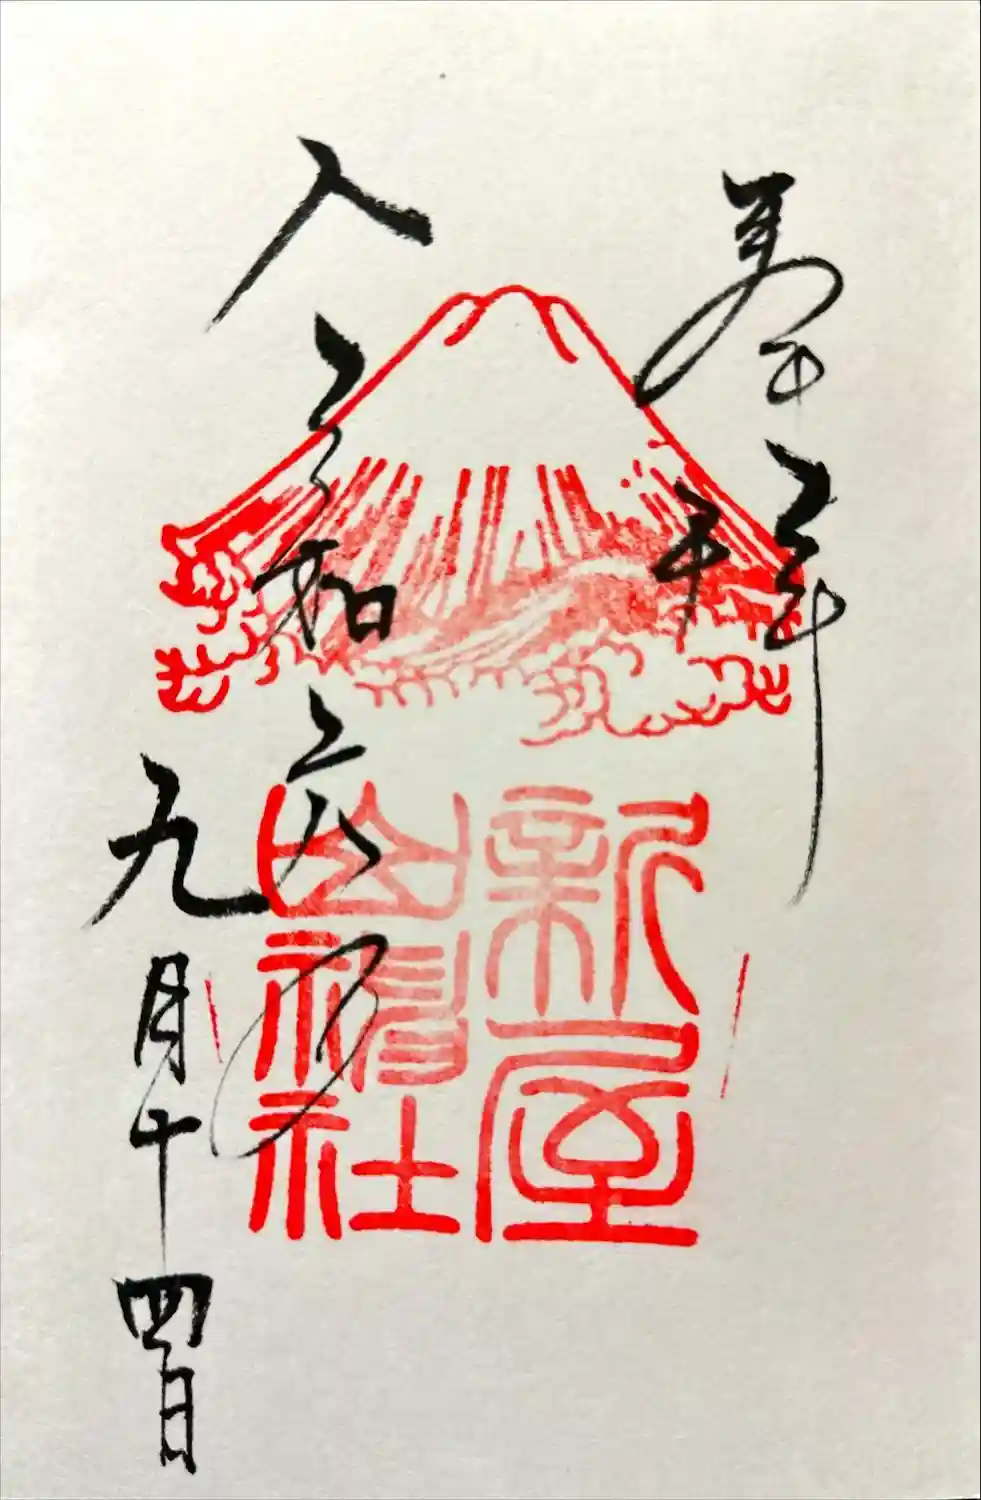 奉拝
新屋
山神社
令和六年
九月十四日